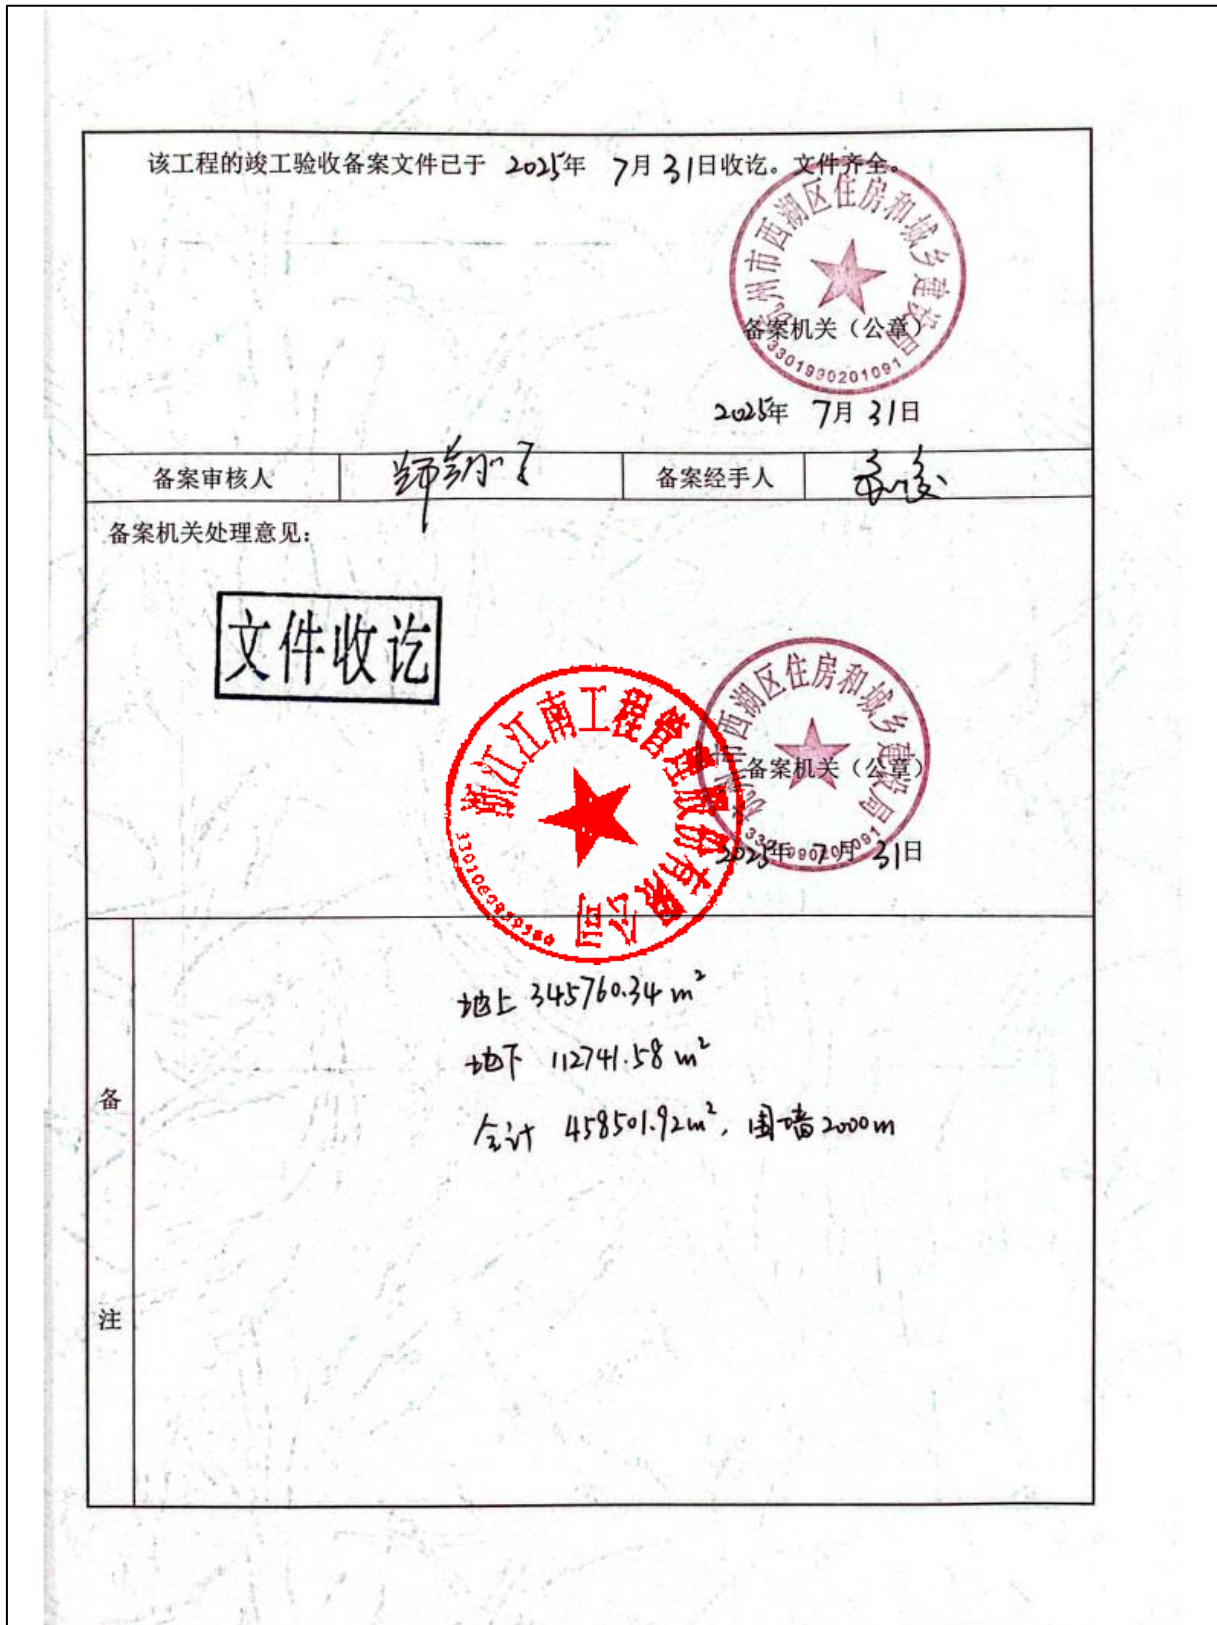 该工程的竣工验收备案文件已于 2025年 7月 31日收讫。文件齐全。
杭州市西湖区住房和城乡建设局
备案机关（公章）
3301990201091
2025年 7月 31日
备案审核人
备案经手人
备案机关处理意见：
文件收讫
浙江江南工程管理股份有限公司
杭州市西湖区住房和城乡建设局
备案机关（公章）
2025年 7月 31日
地上 345760.34 m²
地下 112741.58 m²
合计 458501.92m², 围墙2000m
备
注